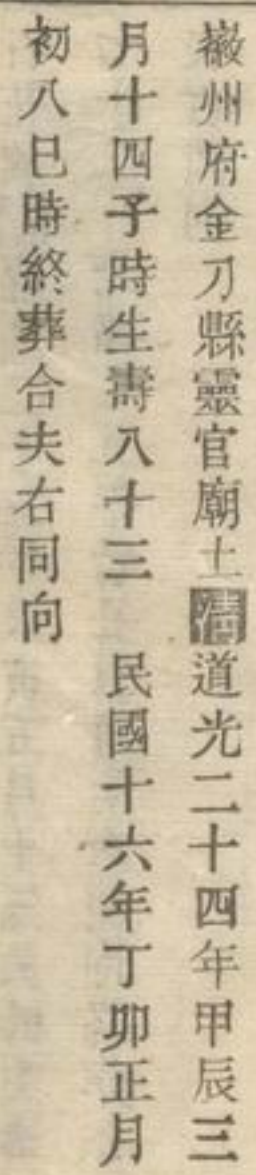 徽州府金刀縣靈官廟土清道光二十四年甲辰三
月十四子時生壽八十三　民國十六年丁卯正月
初八巳時終葬合夫右同向